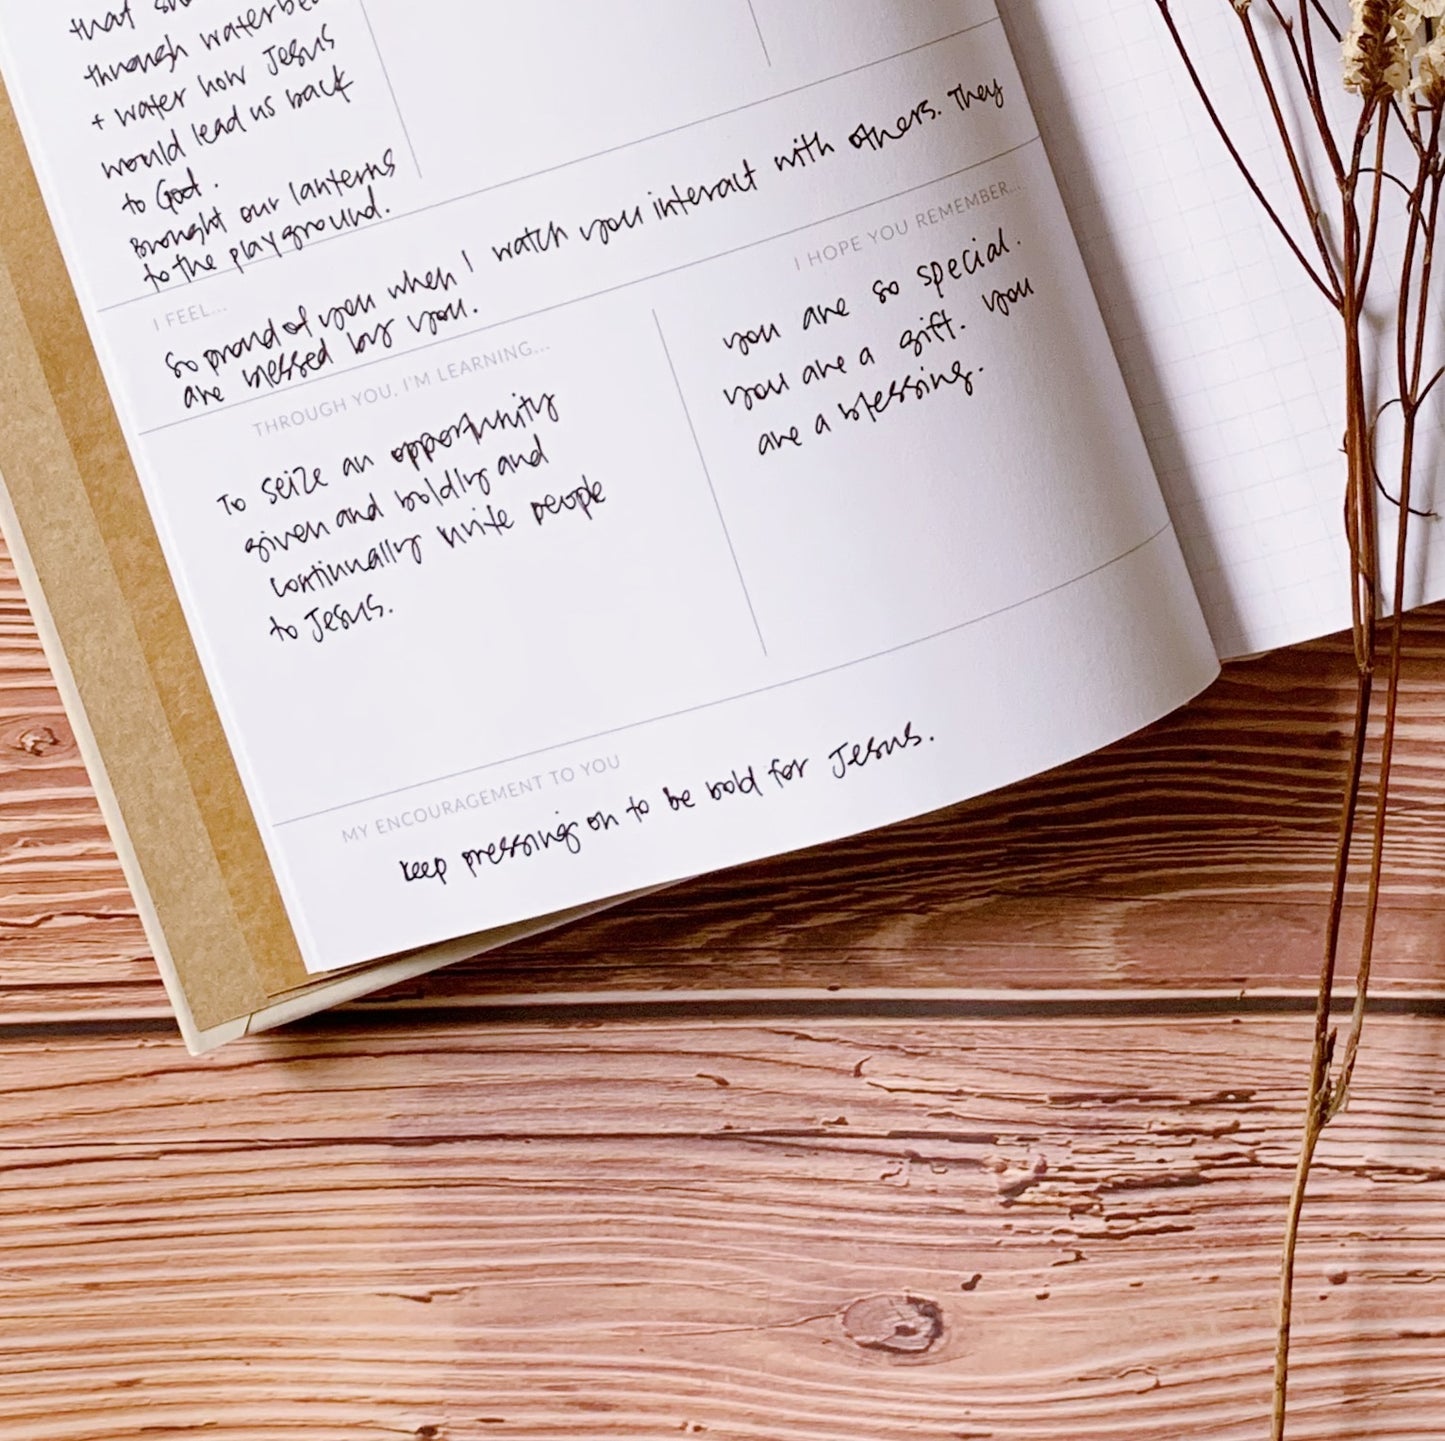 that
through
+ water how Jesus
would lead us back
to God.
Brought our lanterns
to the playground.
I FEEL...
so proud of you when I watch you interact with others. They
are blessed by you.
THROUGH YOU, I'M LEARNING...
To seize an opportunity
given and boldly and
continually invite people
to Jesus.
I HOPE YOU REMEMBER...
you are so special.
you are a gift. you
are a blessing.
MY ENCOURAGEMENT TO YOU
keep pressing on to be bold for Jesus.